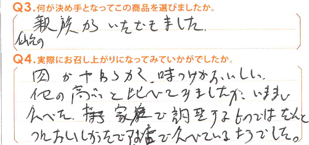 Q3.何が決め手となってこの商品を選びましたか。
親族からいただきました。
仙台の
Q4.実際にお召し上がりになってみていかがでしたか。
肉がやわらかく、味つけがおいしい。
他の高いと比べてみましたが、いままで
食べた 家庭で調理するもので
おいしかったで食べているようでした。